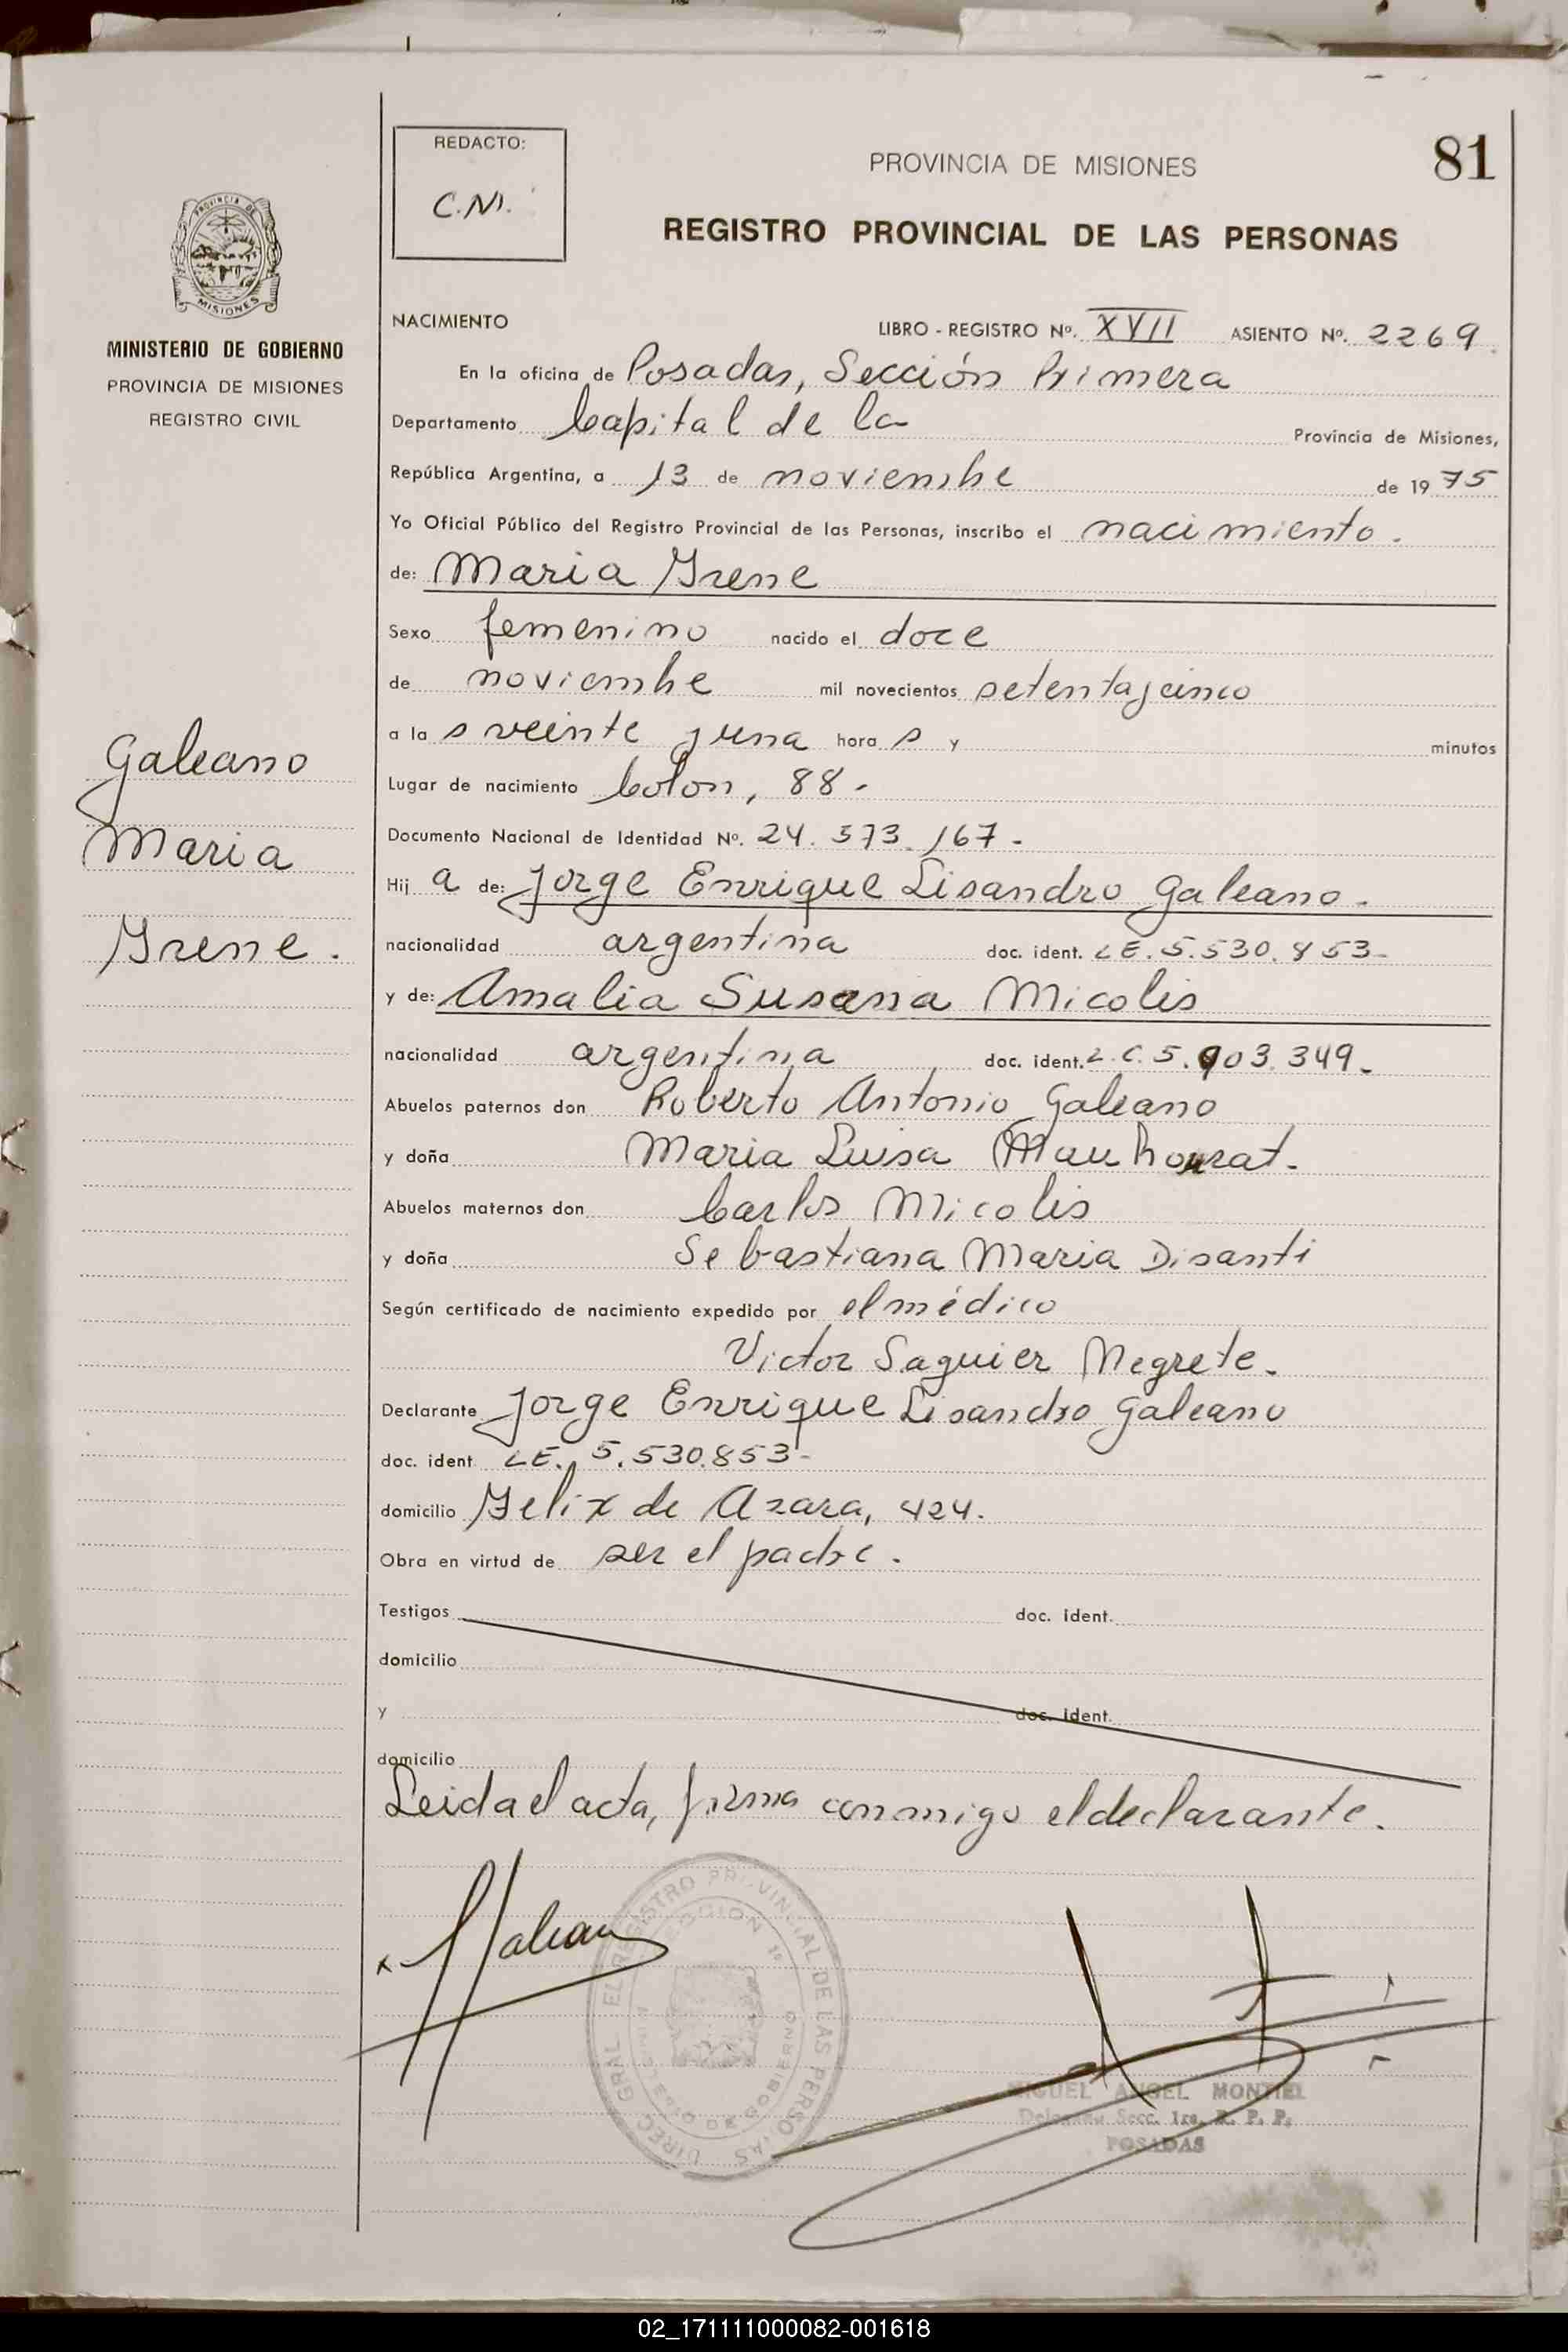 REDACTO:
C.N.
PROVINCIA DE MISIONES
81
REGISTRO PROVINCIAL DE LAS PERSONAS
PROVINCIA DE
MISIONES
MINISTERIO DE GOBIERNO
PROVINCIA DE MISIONES
REGISTRO CIVIL
NACIMIENTO LIBRO - REGISTRO Nº. XVII ASIENTO Nº. 2269
En la oficina de Posadas, Sección Primera
Departamento Capital de la Provincia de Misiones,
República Argentina, a 13 de noviembre de 1975
Yo Oficial Público del Registro Provincial de las Personas, inscribo el nacimiento.
de: Maria Irene
Sexo femenino nacido el doce
de noviembre mil novecientos setentaycinco
a la s veinte y una hora s y minutos
Galeano
Maria
Irene.
Lugar de nacimiento Colon, 88.
Documento Nacional de Identidad Nº. 24.573.167.
Hij a de: Jorge Enrique Lisandro Galeano.
nacionalidad argentina doc. ident. LE. 5.530.853-
y de: Amalia Susana Micolis
nacionalidad argentina doc. ident. L.C. 5.903.349.
Abuelos paternos don Roberto Antonio Galeano
y doña Maria Luisa Mauhourat.
Abuelos maternos don Carlos Micolis
y doña Sebastiana Maria Disanti
Según certificado de nacimiento expedido por el médico
Victor Saguier Negrete.
Declarante Jorge Enrique Lisandro Galeano
doc. ident LE. 5.530.853-
domicilio Felix de Azara, 424.
Obra en virtud de ser el padre.
Testigos doc. ident.
domicilio
y doc. ident.
domicilio
Leida el acta, firma conmigo el declarante.
x Galeano
DIREC. GRAL. EL REGISTRO PROVINCIAL DE LAS PERSONAS
SECCION 1ª
MIGUEL ANGEL MONTIEL
Delegado Secc. 1ra. R. P. P.
POSADAS
02_171111000082-001618